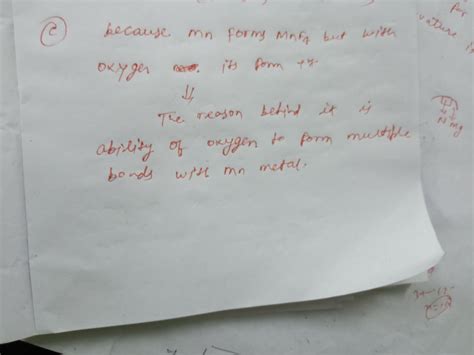 (c) because mn forms MnF4 but with
oxygen its form +7
⇓
The reason behind it is
ability of oxygen to form multiple
bonds with mn metal.
N mg